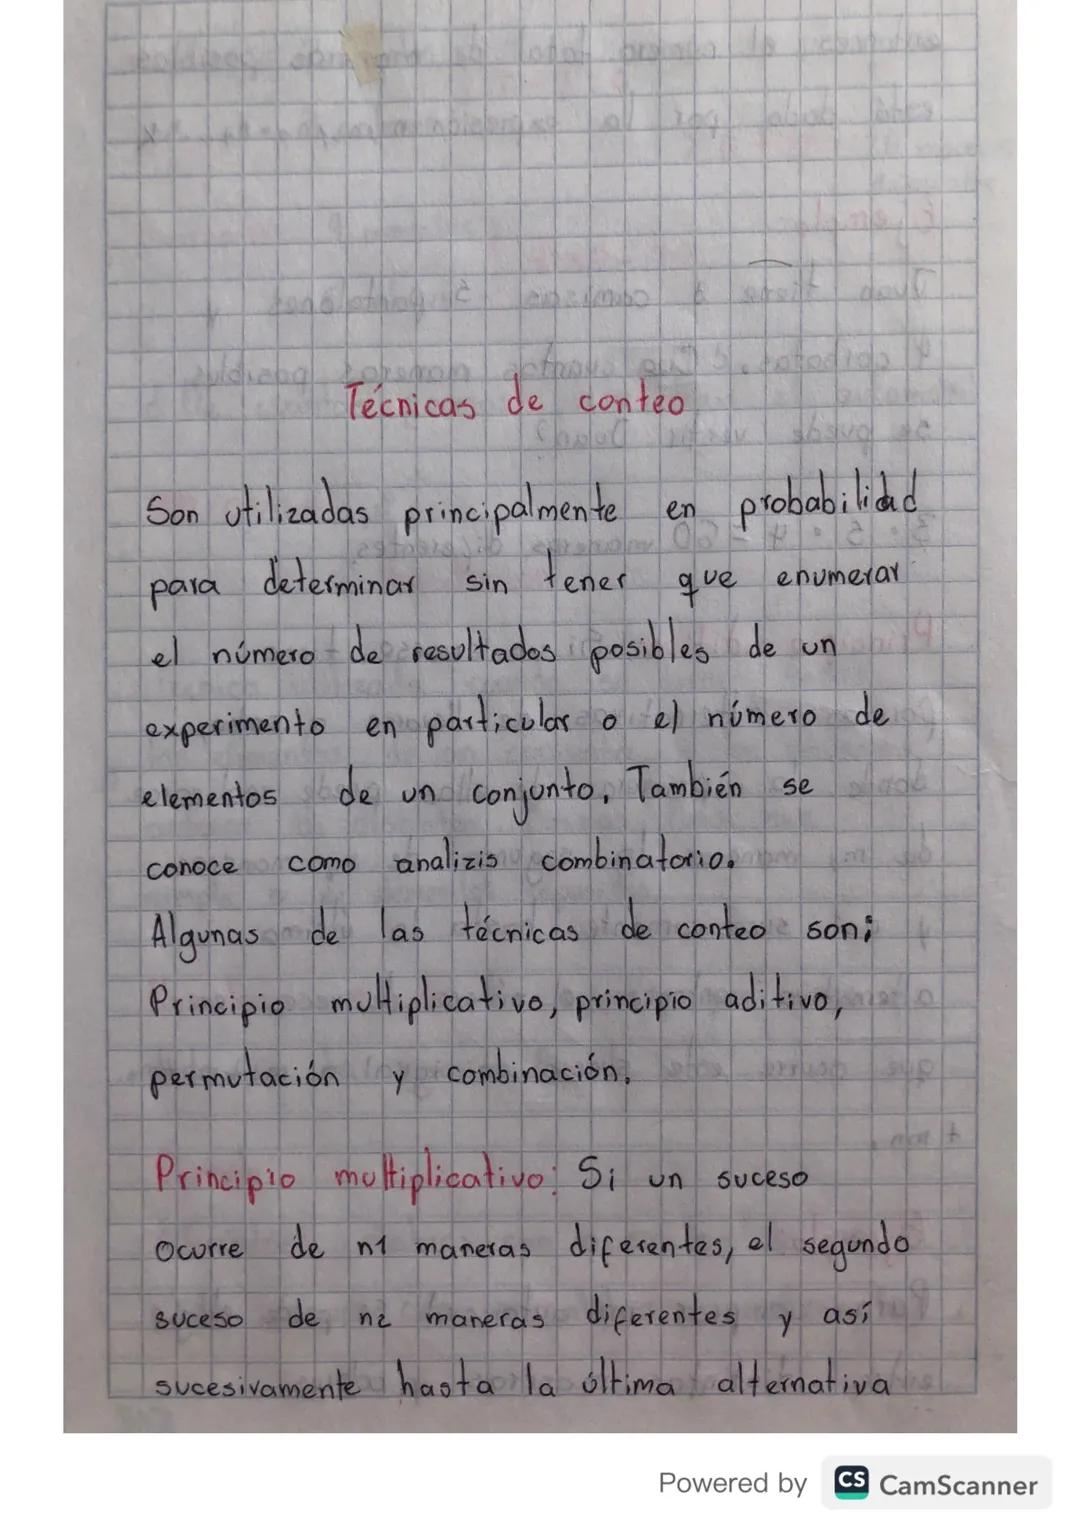 Técnicas de conteo
Son utilizadas principalmente en probabilidad
para determinar sin tener que enumerar
el número de resultados posibles de un
experimento en particular o el número de
elementos de un conjunto. También se
conoce como analizis combinatorio.
Algunas de las técnicas de conteo son;
Principio multiplicativo, principio aditivo,
permutación y combinación.
Principio multiplicativo: Si un suceso
ocurre de n1 maneras diferentes, el segundo
suceso de n2 maneras diferentes y así
sucesivamente hasta la última alternativa
Powered by CS CamScanner